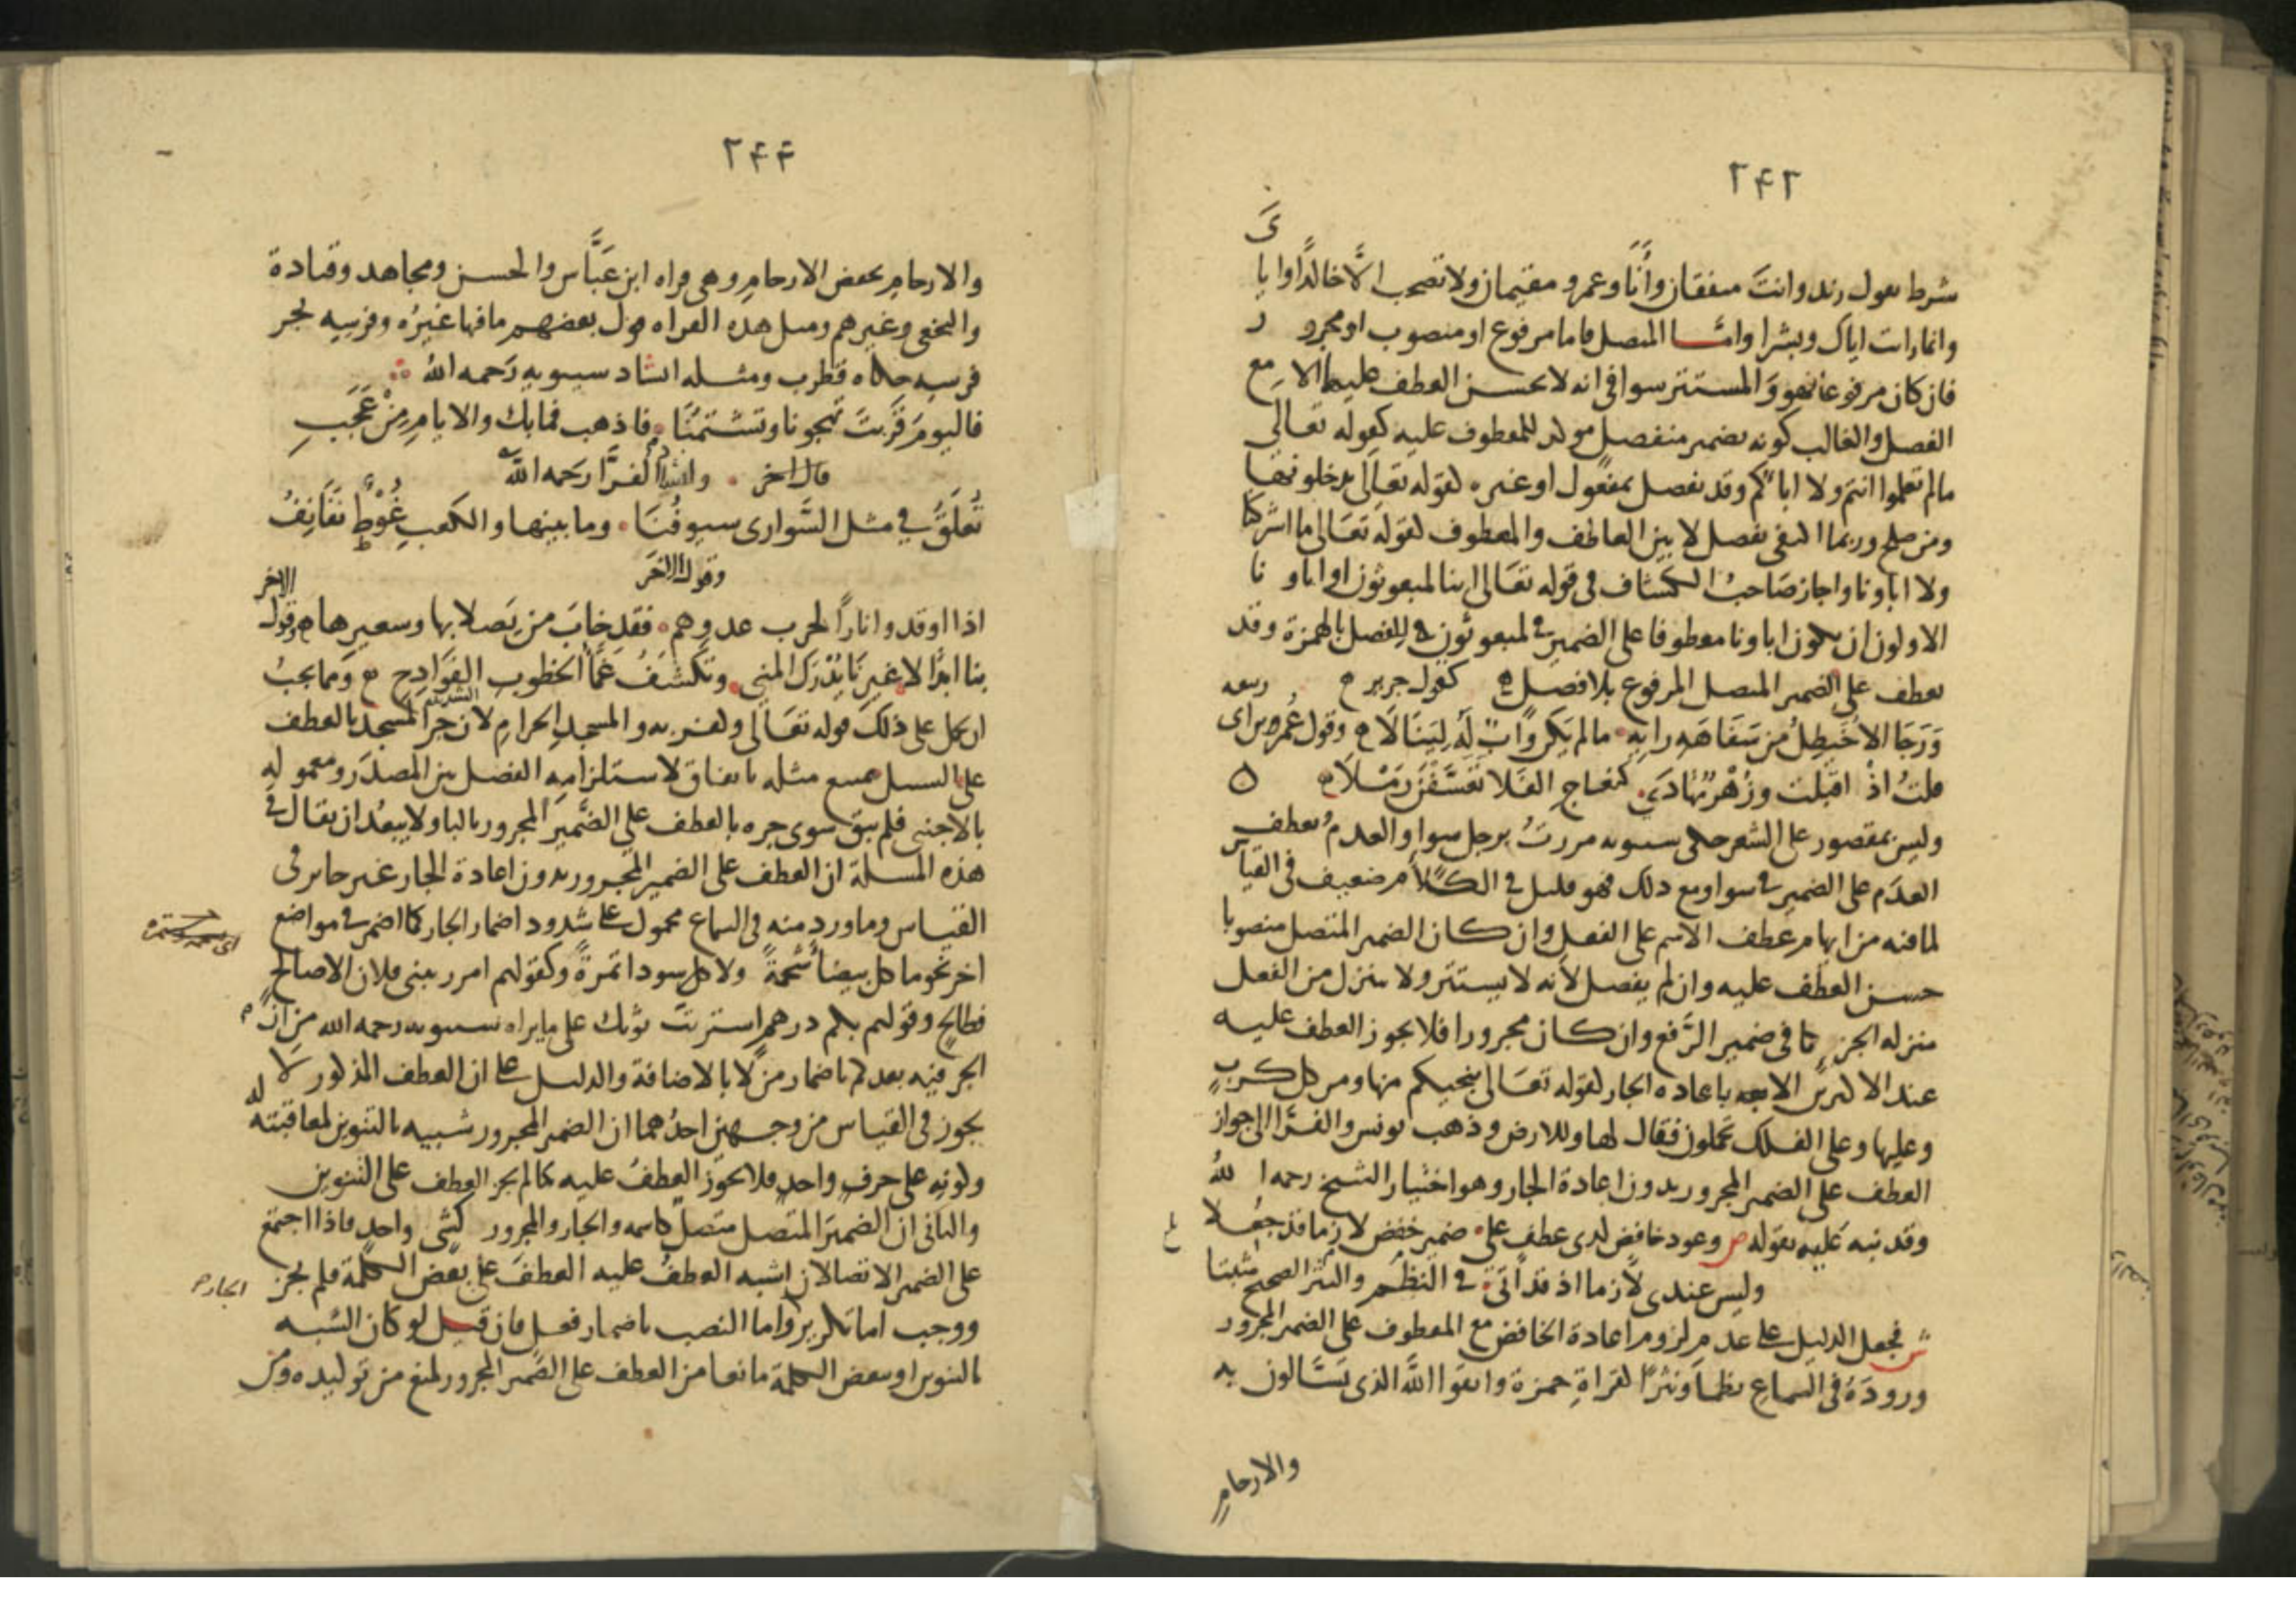 ٢٤٢
شرط تقول زيد وانت متفقان وأنا وعمرو مقيمان ولا تصحب الا خالدا وايا
ى
وانما رايت اياك وبشرا واما المتصل فاما مرفوع او منصوب او مجرور
فان كان مرفوعا فهو والمستتر سوا في انه لا يحسن العطف عليهما الا مع
الفصل والغالب كونه بضمير منفصل مولد للمعطوف عليه كقوله تعالى
مالم تعلموا انتم ولا اباؤكم وقد يفصل بمفعول او غيره لقوله تعالى يدخلونها
ومن صلح وربما اكتفى بفصل لا بين العاطف والمعطوف لقوله تعالى ما اشركنا
ولا اباونا واجاز صاحب الكشاف في قوله تعالى اينا لمبعوثون او اباونا
الاولون ان يكون اباونا معطوفا على الضمير في لمبعوثون للفصل بالهمزة وقد
يعطف على الضمير المتصل المرفوع بلا فصل كقول جرير
وَرَجَا الاُخَيطِلُ من سَفَاهَةِ رايِه مالم يكن وابٌ له لِيَنَالَا وقول عمر
قلتُ اذْ اقبلت وزُهْرٌ تهادى كنعاج الفلا تعسفن رملا
وليس بمقصور على الشعر حكى سيبويه مررتُ برجل سوا والعدم بعطف
العدم على الضمير في سوا ومع ذلك فهو قليل في الكلام ضعيف في القياس
لما فيه من ايهام عطف الاسم على الفعل وان كان الضمير المتصل منصوبا
حسن العطف عليه وان لم يفصل لانه لا يستتر ولا ينزل من الفعل
منزله الجزء كما في ضمير الرفع وان كان مجرورا فلا يجوز العطف عليه
عند الاكثرين الا باعاده الجار لقوله تعالى ينجيكم منها ومن كل كرب
وعليها وعلى الفلك تحملون فقال لها وللارض وذهب يونس والفرا الى جواز
العطف على الضمير المجرور بدون اعادة الجار وهو اختيار الشيخ رحمه الله
وقد نبه عليه بقوله ص وعود خافض لدى عطف على ضمير خفض لازما قد جعلا
وليس عندى لازما اذ قد أتى في النظم والنثر الصحيح مثبتا
ش فجعل الدليل على عدم لزوم اعادة الخافض مع المعطوف على الضمير المجرور
ورودَهُ في السماع نظما ونثرا لقراةِ حمزة واتقوا الله الذى تَسَّالون به
والارحامِ
٢٤٤
والارحامِ بخفض الارحامِ وهى قراه ابن عَبَّاس والحسن ومجاهد وقتادة
والنخعى وغيرهم ومثل هذه القراه قول بعضهم ما فيها غيرُه وفرسِه بجر
فرسه حكاه قطرب ومثله انشاد سيبويه رَحمه الله
فاليومَ قَرَّبتَ تهجونا وتشتمُنَا فاذهب فما بك والايامِ مِنْ عَجَبِ
قال اخر وانشد الفرَّا رحمه الله
تُعَلَّقُ في مثل السَّوارى سيوفُنَا وما بينها والكعبِ غُوْطٌ نَفَانِفُ
وقول الاخر
اذا اوقدوا نارًا لحرب عدوهم فقد خابَ من يَصلا بها وسعيرها وقول الاخر
بنا ابدًا لا غيرِنا يُدْرَك المنى وتكشَفُ غَمَّا الخطوب الفَوَادح ومما يجبُ
ان يحمل على ذلك قوله تعالى وكفر به والمسجدِ الحرامِ لان جر المسجد بالعطف
على السبيل ممتنع مثله باتفاق لاستلزامه الفصل بين المصدر ومعموله
بالاجنبى فلم يبق سوى جره بالعطف على الضمير المجرور بالبا ولا يبعُد ان يقال في
هذه المسلة ان العطف على الضمير المجرور بدون اعادة الجار غير جايز في
القياس وما ورد منه في السماع محمول على شدود اضمار الجار كما اضمر في مواضع
اخر نحو ما كل بيضا شحمةً ولا كل سودا تمرةً وكقولهم امرر ببنى فلان الا صالحٍ
فطالحٍ وقولهم بكم درهمٍ استريت ثوبك على ما يراه سيبويه رحمه الله من ان
الجر فيه بعد كم باضمار من لا بالاضافة والدليل على ان العطف المذكور لا
يجوز في القياس من وجهين احدُهما ان الضمير المجرور شبيه بالتنوين لمعاقبته له
وكونه على حرف واحد فلا يجوز العطفُ عليه كما لم يجز العطف على التنوين
والثانى ان الضميرَ المتصل متصلٌ كاسمه والجار والمجرور كشى واحدٍ فاذا اجتمع
على الضمير الاتصالان اشبه العطفُ عليه العطفَ على بعض الكلمة فلم يجز
الجار
ووجب اما تكرير واما النصب باضمار فعل فان قيل لو كان الشبه
بالتنوين او ببعض الكلمة مانعا من العطف على الضمير المجرور لمنع من توكيده ومن